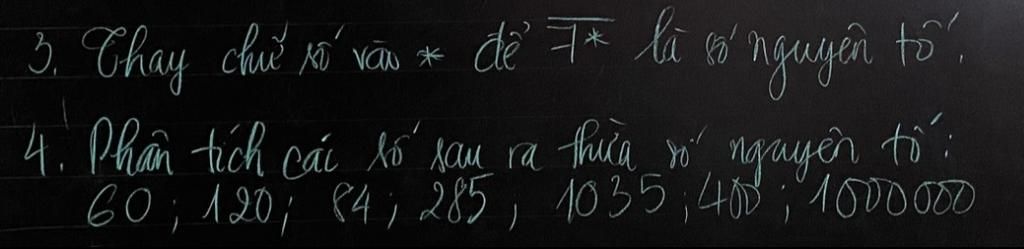 3. Thay chữ số vào * để 7* là số nguyên tố.
4. Phân tích các số sau ra thừa số nguyên tố:
60; 120; 84; 285; 1035; 400; 1000000